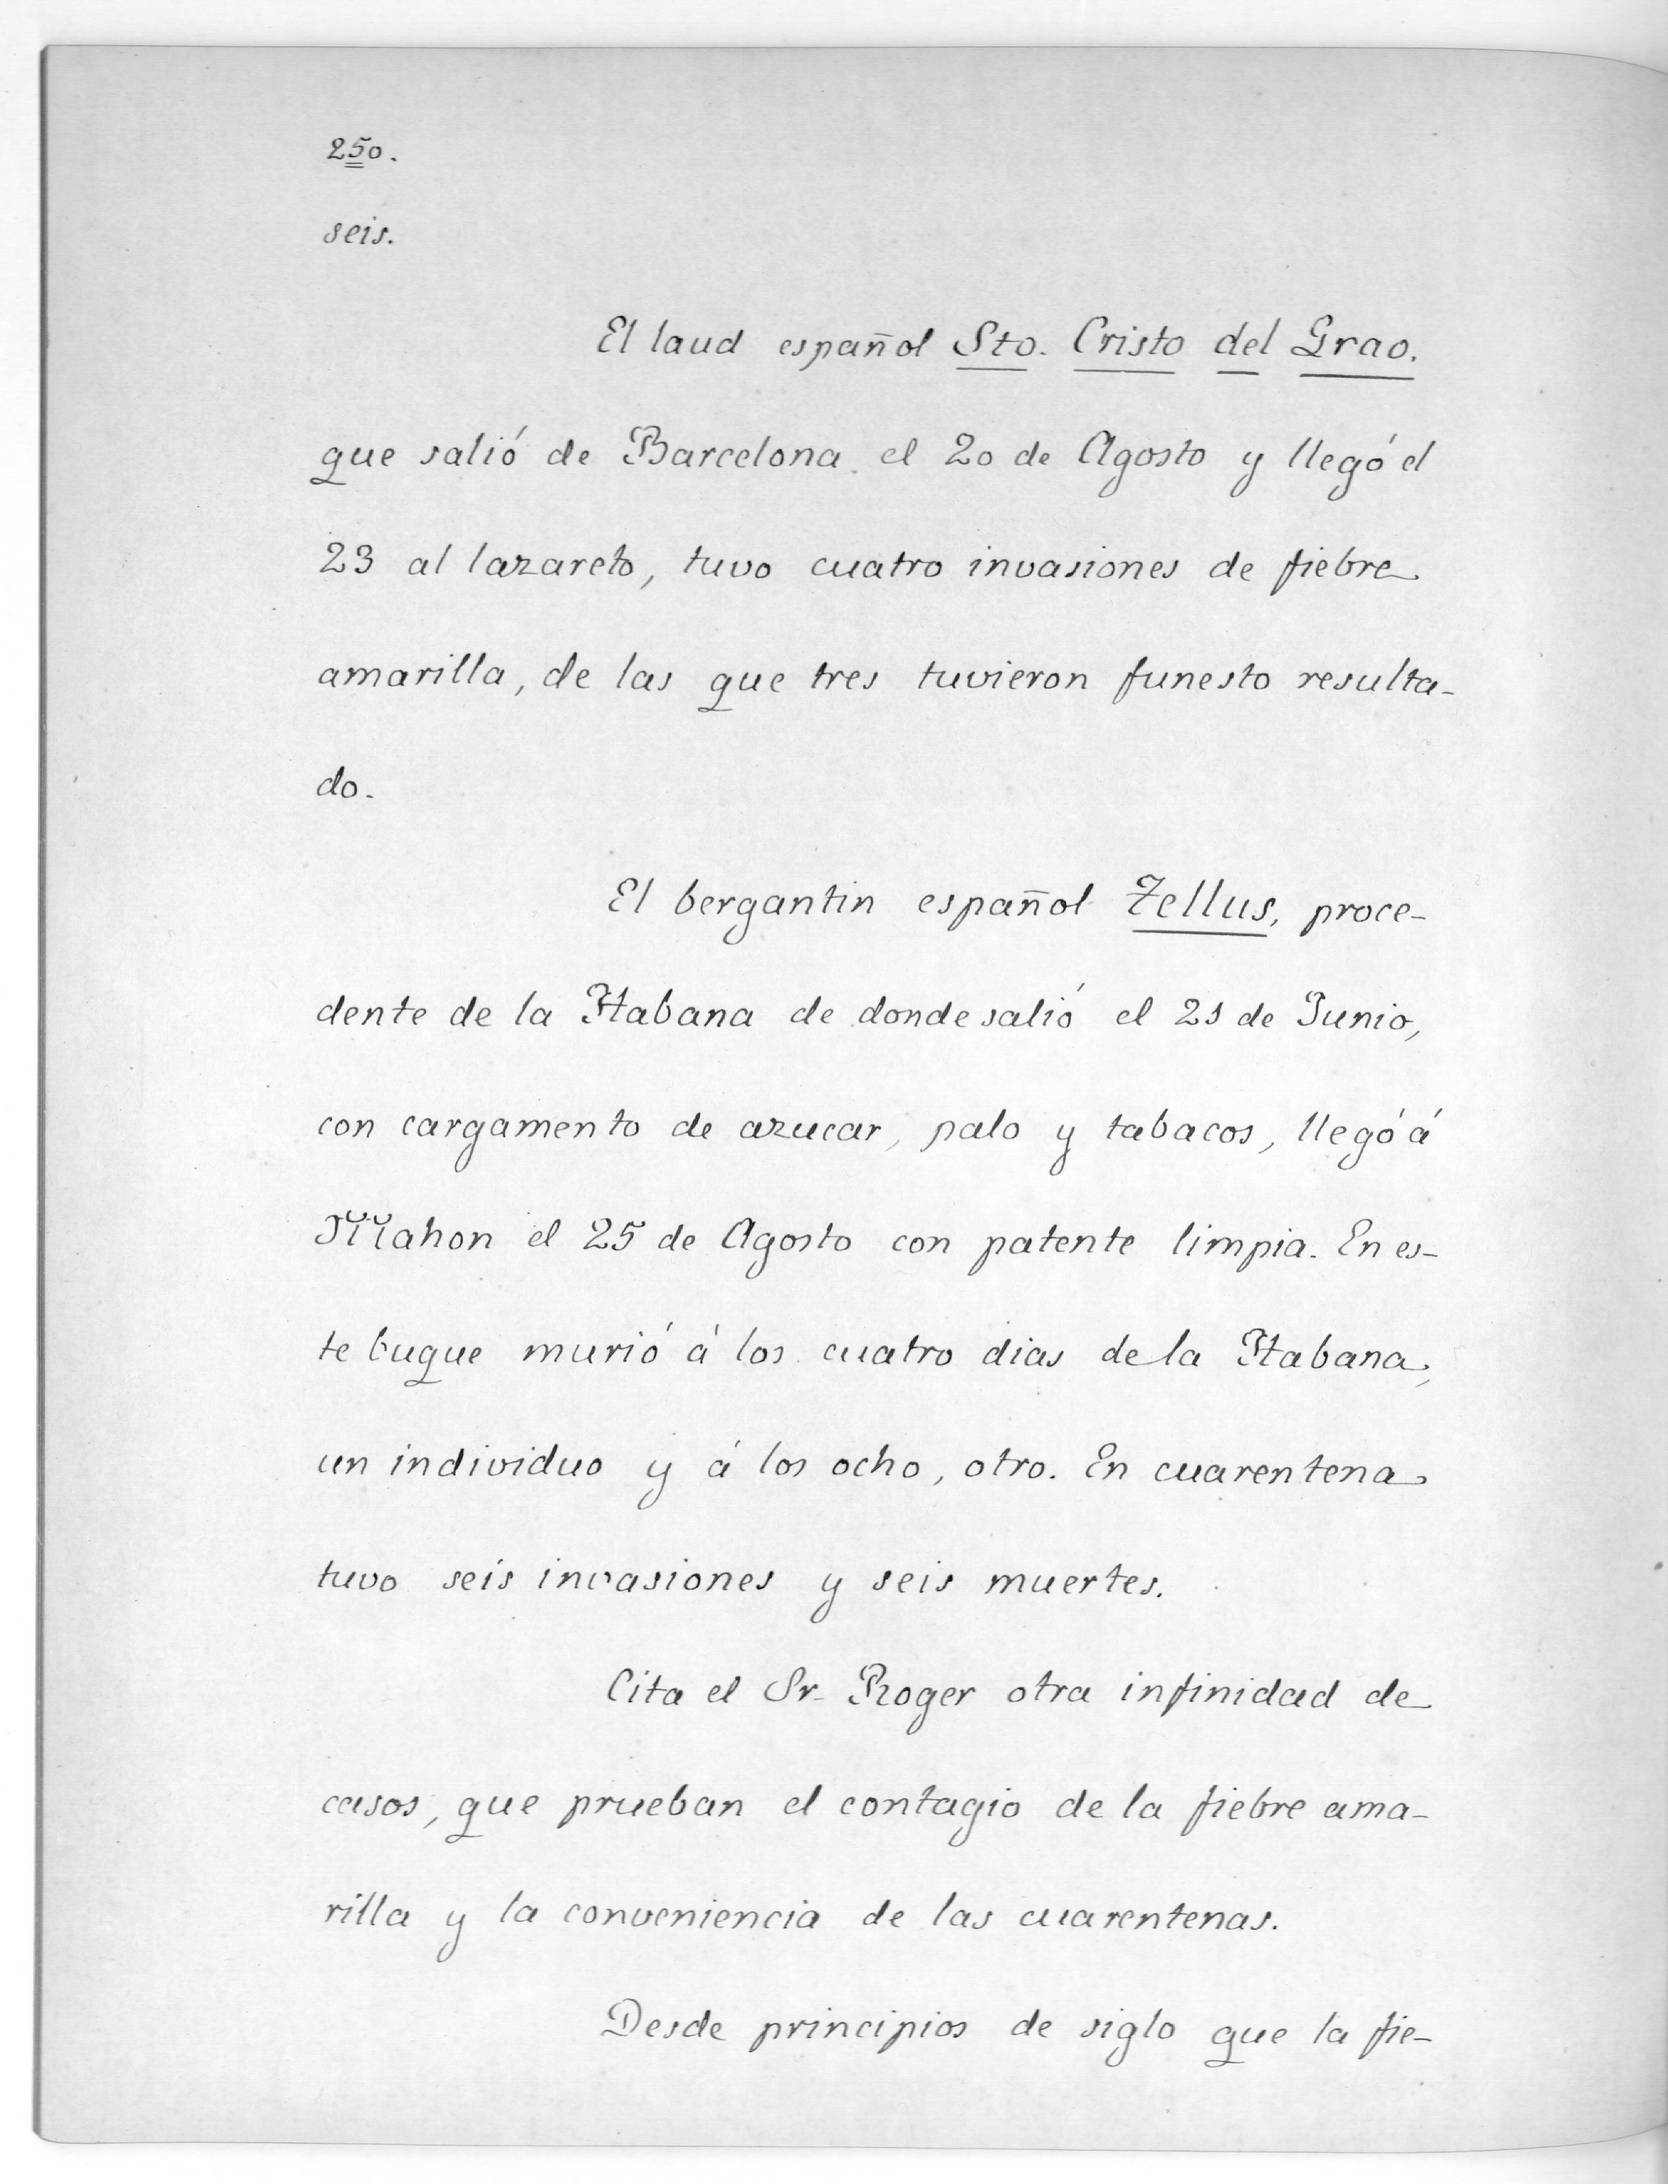 250.
seis.
El laud español Sto. Cristo del Grao.
que salió de Barcelona el 20 de Agosto y llegó el
23 al lazareto, tuvo cuatro invasiones de fiebre
amarilla, de las que tres tuvieron funesto resulta-
do.
El bergantin español Tellus, proce-
dente de la Habana de donde salió el 21 de Junio,
con cargamento de azucar, palo y tabacos, llegó á
Mahon el 25 de Agosto con patente limpia. En es-
te buque murió á los cuatro dias de la Habana,
un individuo y á los ocho, otro. En cuarentena
tuvo seis invasiones y seis muertes.
Cita el Sr. Roger otra infinidad de
casos, que prueban el contagio de la fiebre ama-
rilla y la conveniencia de las cuarentenas.
Desde principios de siglo que la fie-